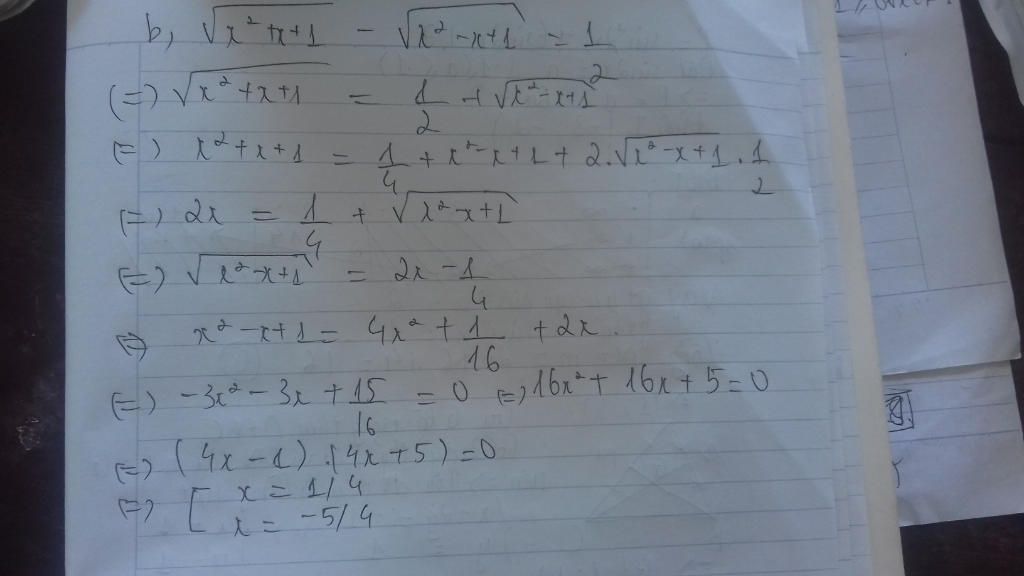 b, √(x² + x + 1) - √(x² - x + 1) = 1/2
(=) √(x² + x + 1) = 1/2 + √(x² - x + 1)
(=) x² + x + 1 = 1/4 + x² - x + 1 + 2.√(x² - x + 1) . 1/2
(=) 2x = 1/4 + √(x² - x + 1)
(=) √(x² - x + 1) = 2x - 1/4
=> x² - x + 1 = 4x² + 1/16 + 2x.
(=) -3x² - 3x + 15/16 = 0 (=) 16x² + 16x + 5 = 0
(=) (4x - 1) . (4x + 5) = 0
(=) [ x = 1/4
x = -5/4